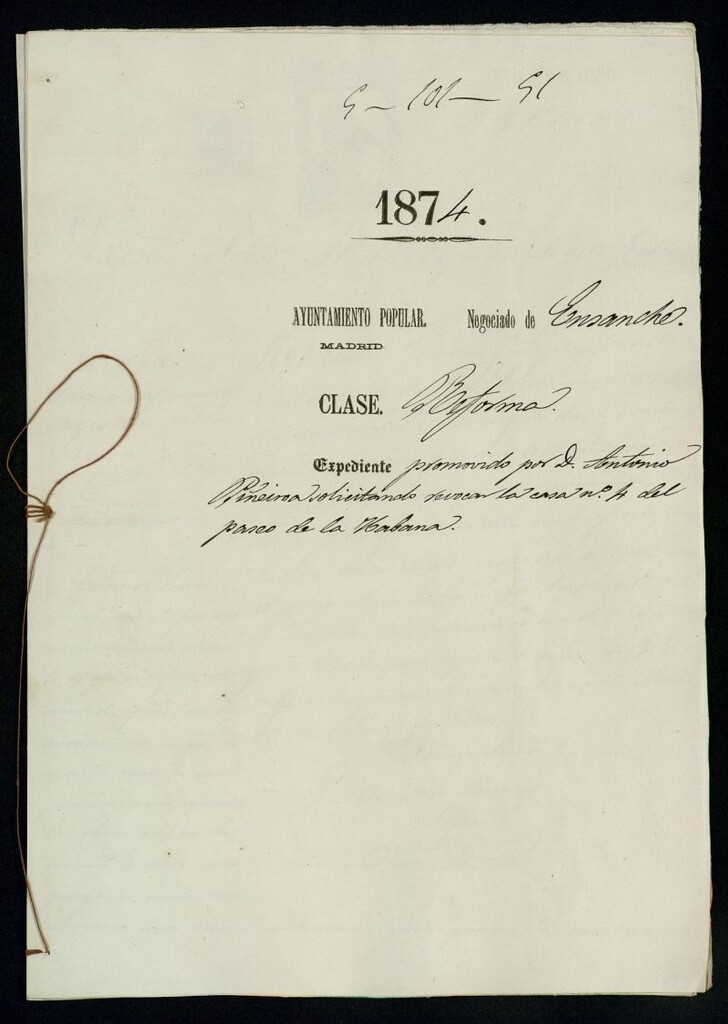 5-101-51
1874.
AYUNTAMIENTO POPULAR. Negociado de Ensanche.
MADRID
CLASE. Reforma.
Expediente promovido por D. Antonio
Piñeiroa solicitando revocar la casa nº 4 del
paseo de la Habana.